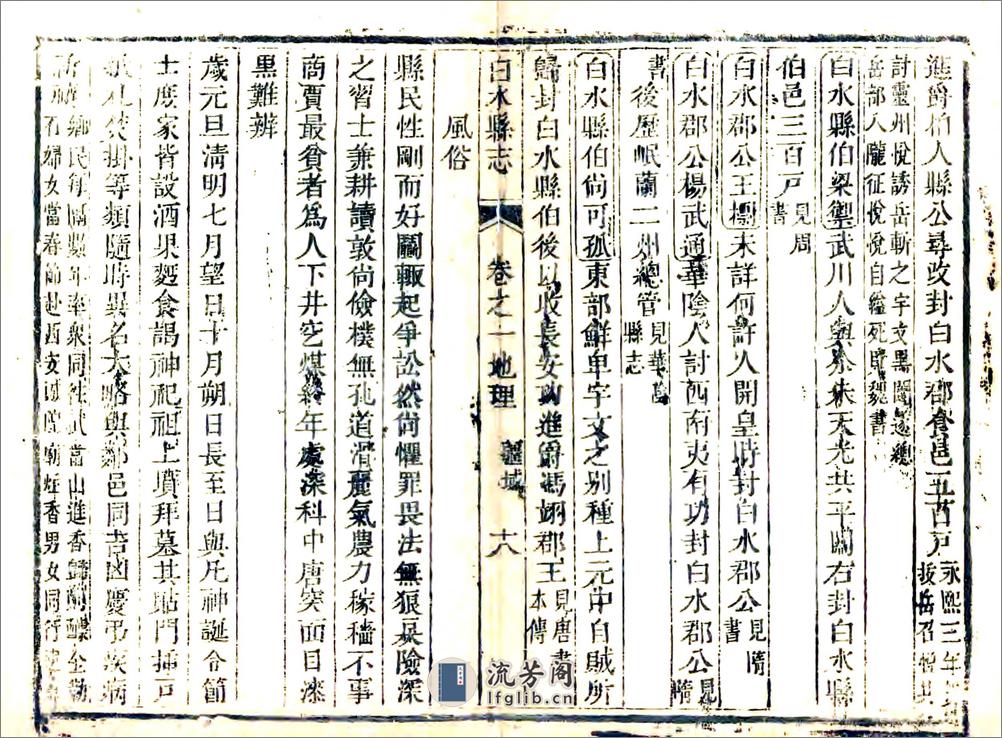 進爵伯人縣公尋改封白水郡食邑五百戸永熙三年
拔岳召悅共
討靈州悅誘岳斬之宇文黑闥
岳部入隴征悅悅自縊死見魏書
白水縣伯梁禦武川人與尒朱天光共平關右封白水縣
伯邑三百戸見周書
白水郡公王未詳何許人開皇時封白水郡公見隋書
白水郡公楊武通華陰人討西南夷有功封白水郡公見隋
書後歷岷蘭二州總管見華陰縣志
白水縣伯尚可孤東部鮮卑宇文之别種上元中自賊所
歸封白水縣伯後以收長安功進爵馮翊郡王見唐書本傳
白水縣志
卷之一地理
疆域
十八
風俗
縣民性剛而好鬭輒起爭訟然尚懼罪畏法無狠戾險深
之習士兼耕讀敦尚儉樸無孔道滑麗氣農力稼穡不事
商賈最貧者爲人下井穵煤終年處深科中唐突面目漆
黑難辨
歲元旦淸明七月望日十月朔日長至日與凡神誕令節
士庶家皆設酒果麪食謁神祀祖上墳拜墓其貼門插戸
焚掛等類隨時異名大略與鄰邑同吉凶慶弔疾病
鄉民每隔數年率衆同往武當山進香歸
婦女當春節赴西安廟烓香男女同行
流芳阁
lfglib.cn